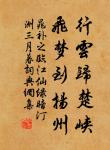 行雲歸楚峽
飛夢到揚州
晁補之臨江仙綠暗汀
洲三月暮詞典網集